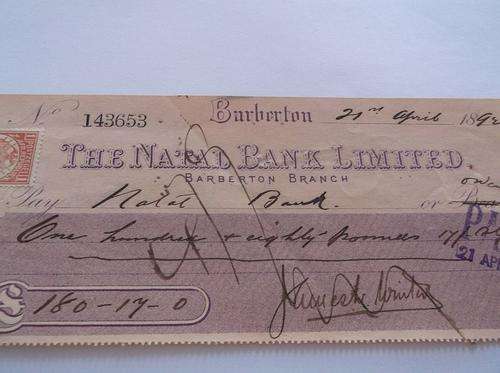 No 143653 Barberton 21st April 189
THE NATAL BANK LIMITED.
BARBERTON BRANCH
Pay Natal Bank. or
One hundred & eighty pounds 17/
21 APR
180-17-0